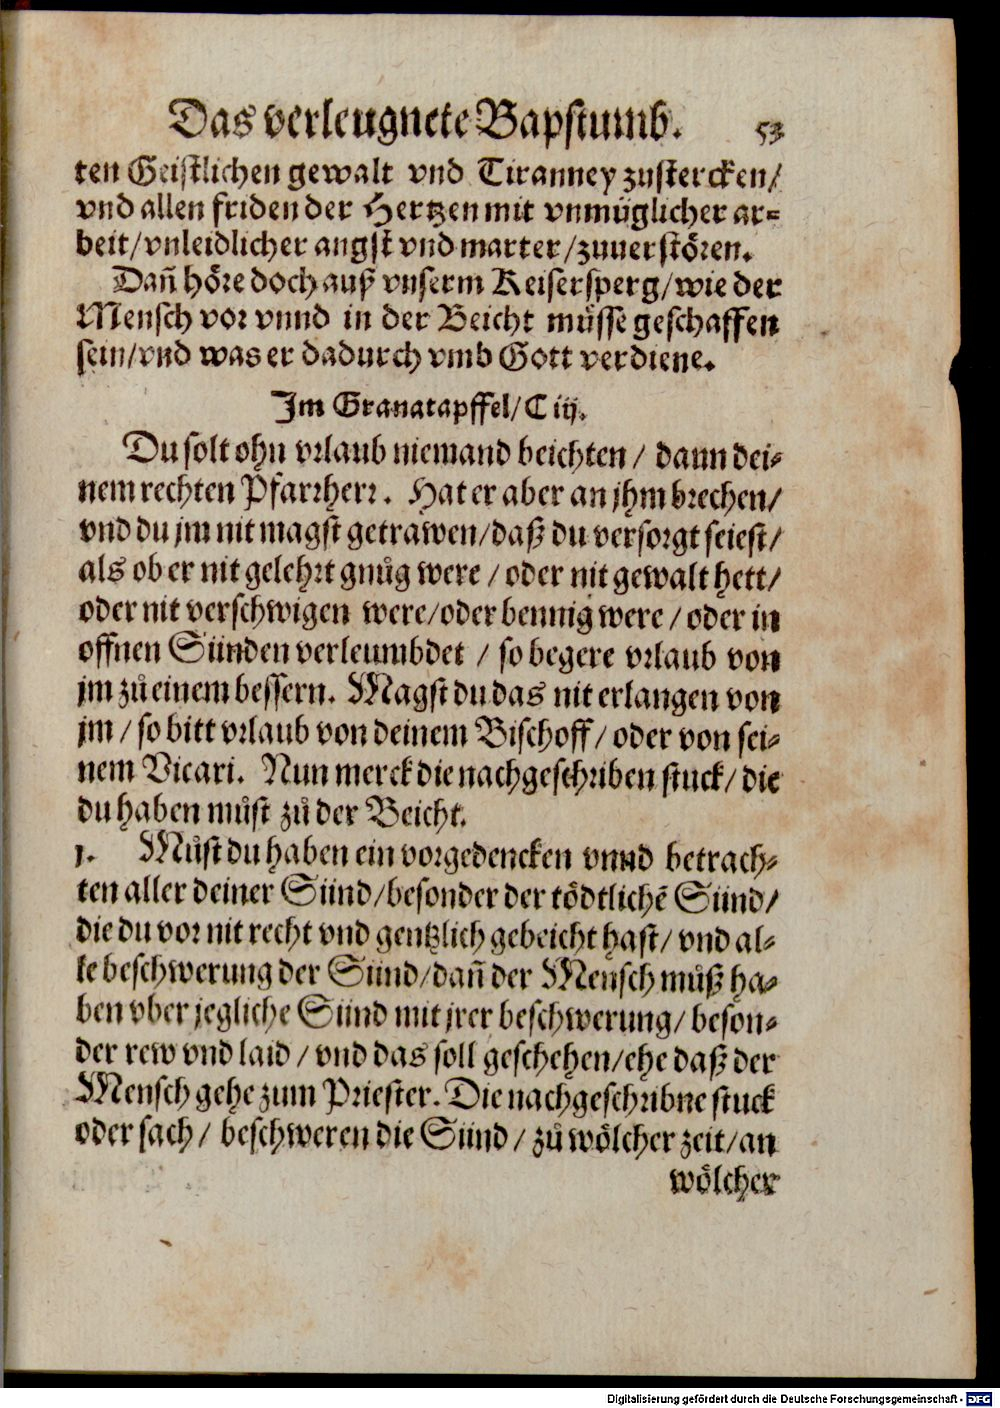 Das verleugnete Bapstumb. 53
ten Geistlichen gewalt vnd Tiranney zustercken/
vnd allen friden der Hertzen mit vnmüglicher ar=
beit/vnleidlicher angst vnd marter/zuuerstören.
Dañ höre doch auß vnserm Keisersperg/wie der
Mensch vor vnnd in der Beicht müsse geschaffen
sein/vnd was er dadurch vmb Gott verdiene.
Im Granatapffel/C iij.
Du solt ohn vrlaub niemand beichten/ dann dei=
nem rechten Pfarrherr. Hat er aber an jhm brechen/
vnd du jm nit magst getrawen/daß du versorgt seiest/
als ob er nit gelehrt gnůg were/ oder nit gewalt hett/
oder nit verschwigen were/oder bennig were/ oder in
offnen Sünden verleumbdet/ so begere vrlaub von
jm zů einem bessern. Magst du das nit erlangen von
jm/ so bitt vrlaub von deinem Bischoff/ oder von sei=
nem Vicari. Nun merck die nachgeschriben stuck/ die
du haben můst zů der Beicht.
1. Můst du haben ein vorgedencken vnnd betrach=
ten aller deiner Sünd/besonder der tödtlichẽ Sünd/
die du vor nit recht vnd gentzlich gebeicht hast/ vnd al=
le beschwerung der Sünd/dañ der Mensch můß ha=
ben vber jegliche Sünd mit jrer beschwerung/ beson=
der rew vnd laid/ vnd das soll geschehen/ehe daß der
Mensch gehe zum Priester. Die nachgeschribne stuck
oder sach/ beschweren die Sünd/ zů wölcher zeit/an
wölcher
Digitalisierung gefördert durch die Deutsche Forschungsgemeinschaft - DFG